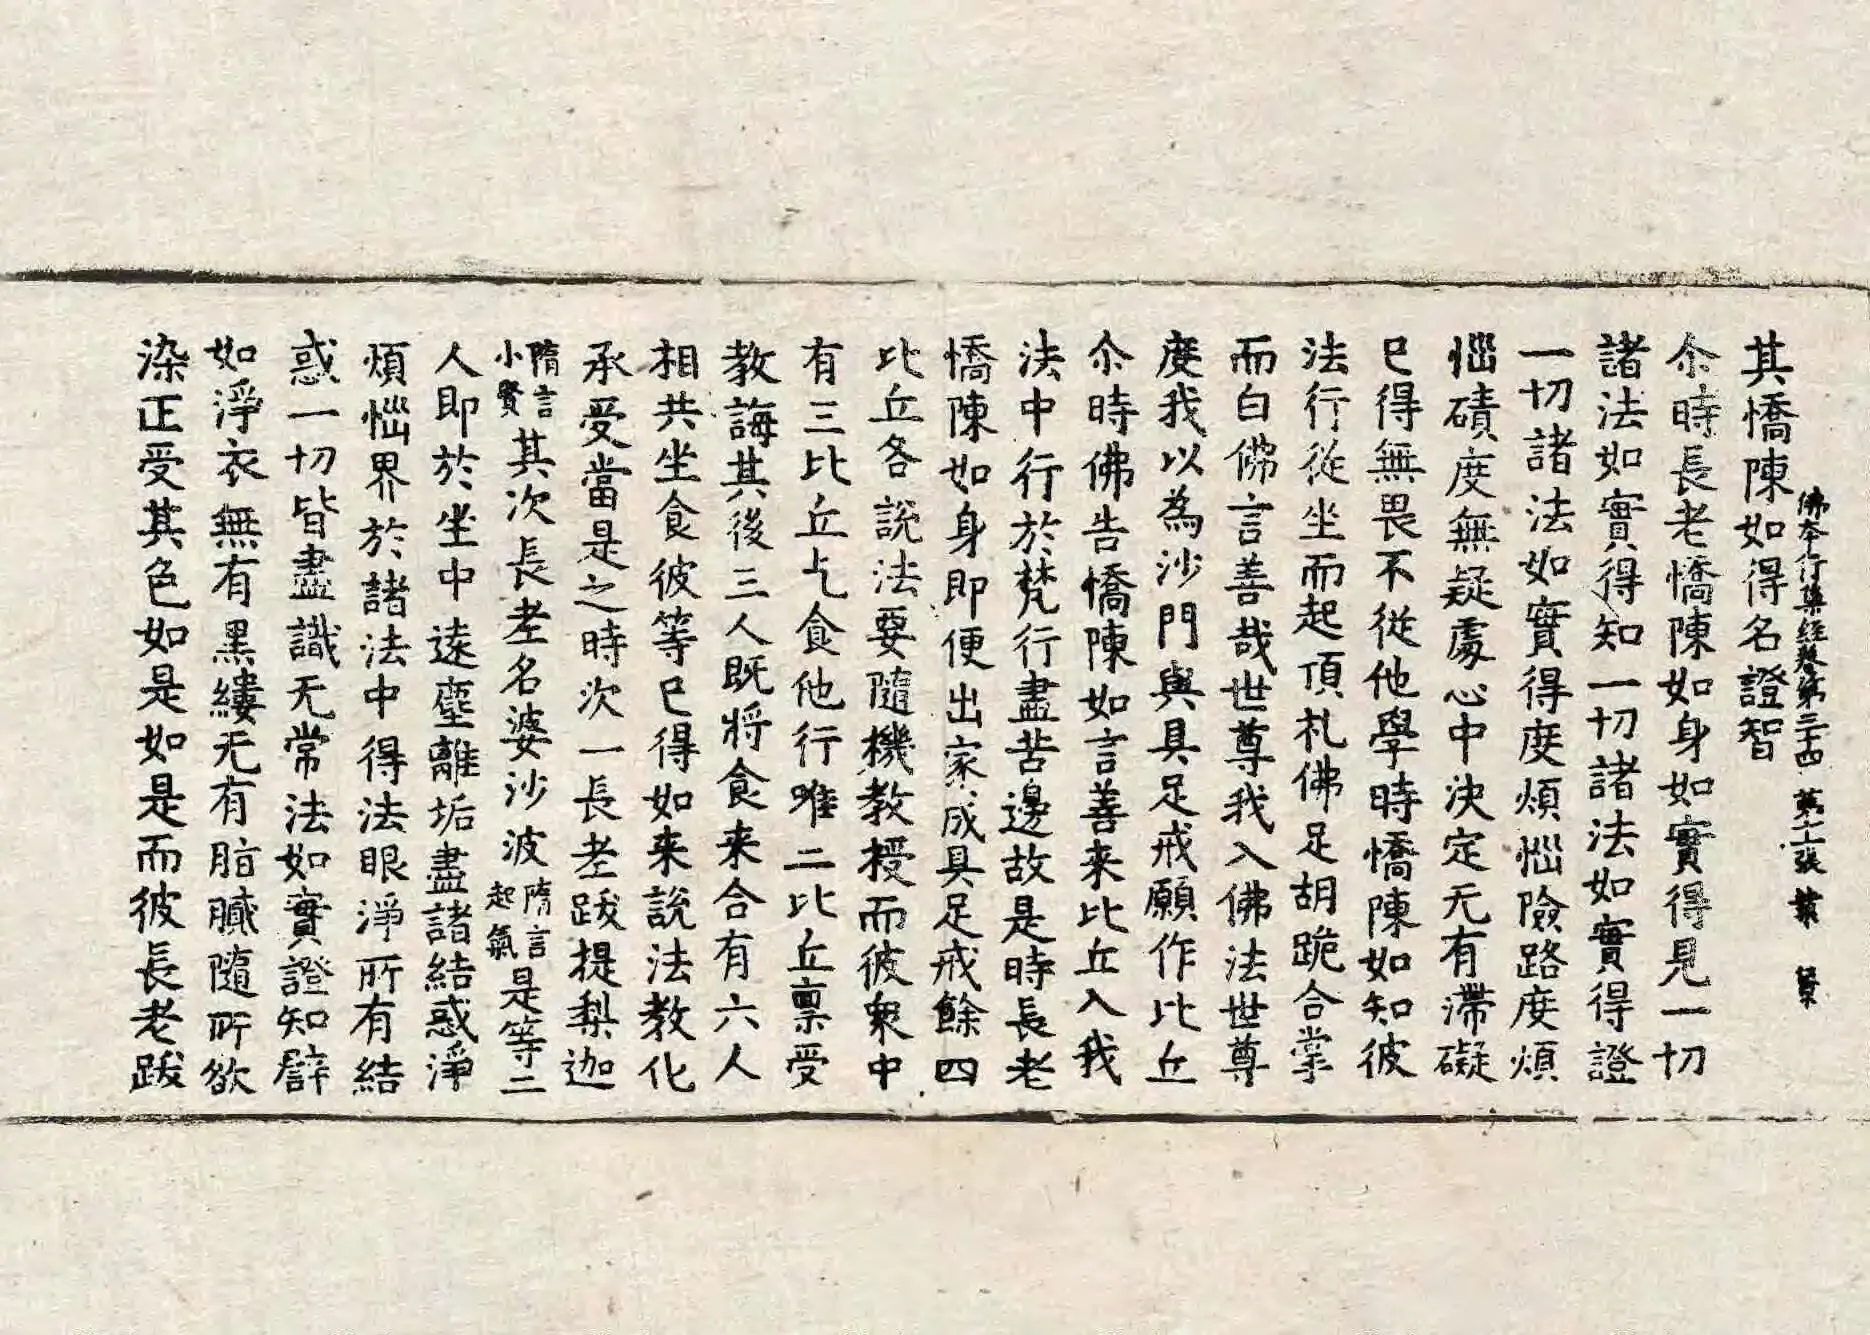 佛本行集經卷第三十四 第十二張 業
其憍陳如得名證智
尒時長老憍陳如身如實得見一切
諸法如實得知一切諸法如實得證
一切諸法如實得度煩惱險路度煩
惱磧度無疑處心中決定无有滯礙
已得無畏不從他學時憍陳如知彼
法行從坐而起頂札佛足胡跪合掌
而白佛言善哉世尊我入佛法世尊
度我以為沙門與具足戒願作比丘
尒時佛告憍陳如言善来比丘入我
法中行於梵行盡苦邊故是時長老
憍陳如身即便出家成具足戒餘四
比丘各說法要隨機教授而彼衆中
有三比丘乞食他行唯二比丘禀受
教誨其後三人既將食来合有六人
相共坐食彼等已得如来說法教化
承受當是之時次一長老跋提梨迦
隋言小賢其次長老名婆沙波隋言起氣是等二
人即於坐中遠塵離垢盡諸結惑淨
煩惱界於諸法中得法眼淨所有結
惑一切皆盡識无常法如實證知辟
如淨衣無有黑縷无有脂膩隨所欲
染正受其色如是如是而彼長老跋